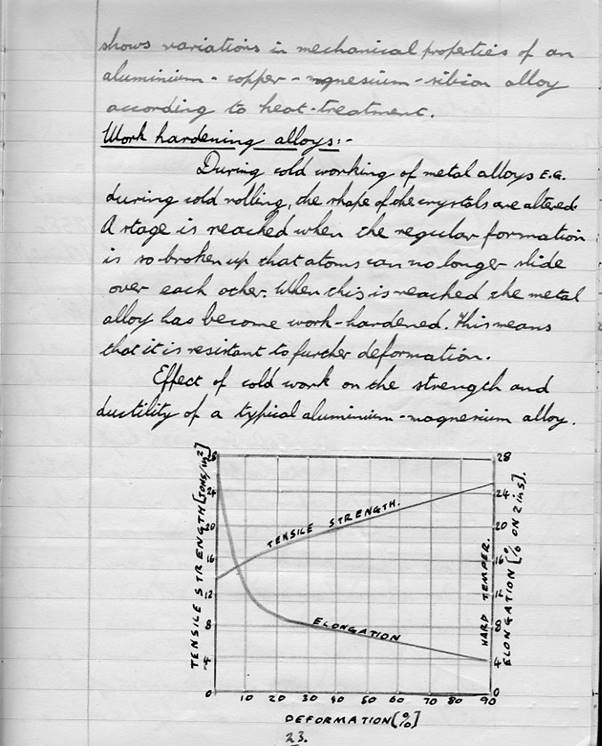 shows variations in mechanical properties of an
aluminium - copper - magnesium - silicon alloy
according to heat-treatment.
Work hardening alloys:-
During cold working of metal alloys E.G.
during cold rolling, the shape of the crystals are altered.
A stage is reached when the regular formation
is so broken up that atoms can no longer slide
over each other. When this is reached the metal
alloy has become work-hardened. This means
that it is resistant to further deformation.
Effect of cold work on the strength and
ductility of a typical aluminium-magnesium alloy.
TENSILE STRENGTH [TONS/IN²]
28
24
20
16
12
8
4
0
TENSILE STRENGTH.
ELONGATION
HARD TEMPER.
28
24
20
16
12
8
4
0
ELONGATION [% ON 2 INS].
10 20 30 40 50 60 70 80 90
DEFORMATION [%]
23.